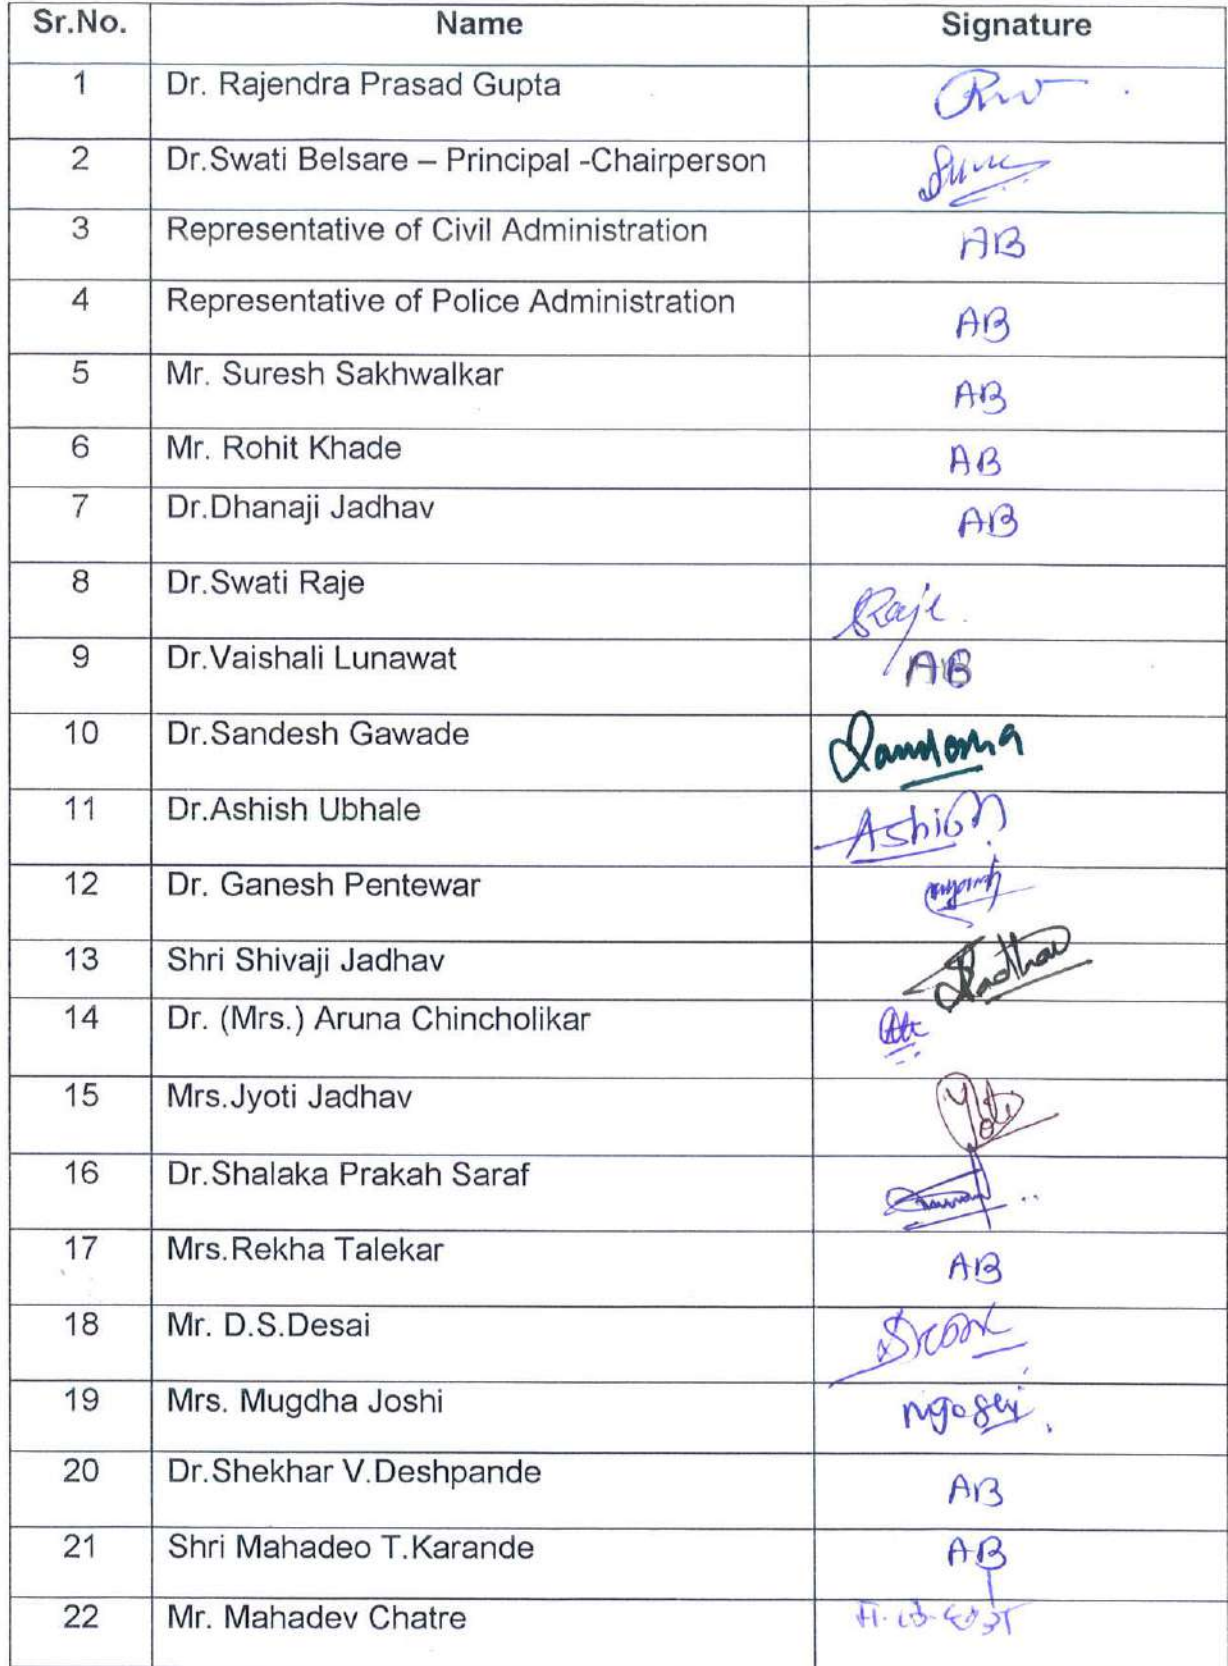 Sr.No. Name Signature
1 Dr. Rajendra Prasad Gupta
2 Dr.Swati Belsare – Principal -Chairperson
3 Representative of Civil Administration AB
4 Representative of Police Administration AB
5 Mr. Suresh Sakhwalkar AB
6 Mr. Rohit Khade AB
7 Dr.Dhanaji Jadhav AB
8 Dr.Swati Raje SRaje.
9 Dr.Vaishali Lunawat AB
10 Dr.Sandesh Gawade
11 Dr.Ashish Ubhale Ashish
12 Dr. Ganesh Pentewar
13 Shri Shivaji Jadhav
14 Dr. (Mrs.) Aruna Chincholikar
15 Mrs.Jyoti Jadhav
16 Dr.Shalaka Prakah Saraf
17 Mrs.Rekha Talekar AB
18 Mr. D.S.Desai
19 Mrs. Mugdha Joshi
20 Dr.Shekhar V.Deshpande AB
21 Shri Mahadeo T.Karande AB
22 Mr. Mahadev Chatre